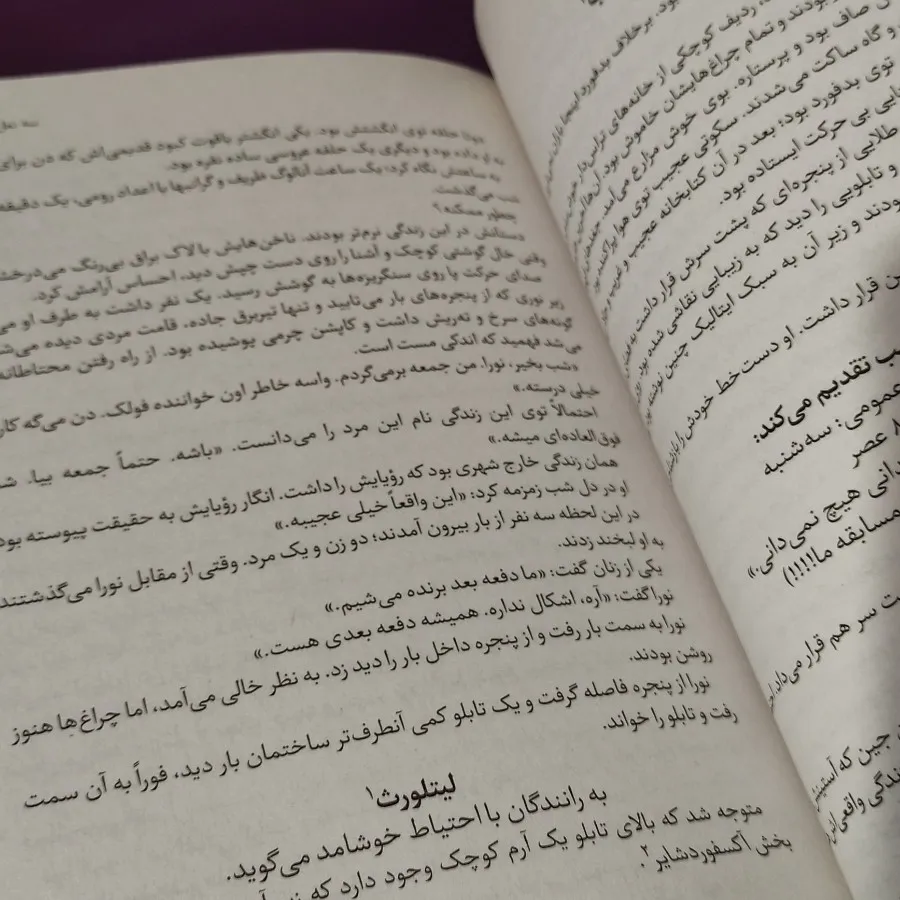 دوتا حلقه توی انگشتش بود. یکی انگشتر یاقوت کبود قدیمی‌اش که دن برای
به او داده بود و دیگری یک حلقه عروسی ساده نقره بود.
به ساعتش نگاه کرد؛ یک ساعت آنالوگ ظریف و گرانبها با اعداد رومی، یک دقیقه
شب می‌گذشت.
چطور ممکنه؟
دستانش در این زندگی نرم‌تر بودند. ناخن‌هایش با لاک براق بی‌رنگ می‌درخش
وقتی خال گوشتی کوچک و آشنا را روی دست چپش دید، احساس آرامش کرد.
صدای حرکت پا روی سنگریزه‌ها به گوشش رسید. یک نفر داشت به طرف او می
زیر نوری که از پنجره‌های بار می‌تابید و تنها تیربرق جاده، قامت مردی دیده می‌ش
گونه‌های سرخ و ته‌ریش داشت و کاپشن چرمی پوشیده بود. از راه رفتن محتاطانه
می‌شد فهمید که اندکی مست است.
«شب بخیر، نورا. من جمعه برمی‌گردم. واسه خاطر اون خواننده فولک. دن می‌گه کار
خیلی درسته.»
احتمالاً توی این زندگی نام این مرد را می‌دانست. «باشه. حتماً جمعه بیا. ش
فوق‌العاده‌ای میشه.»
همان زندگی خارج شهری بود که رؤیایش را داشت. انگار رؤیایش به حقیقت پیوسته بود
او در دل شب زمزمه کرد: «این واقعاً خیلی عجیبه.»
در این لحظه سه نفر از بار بیرون آمدند؛ دو زن و یک مرد. وقتی از مقابل نورا می‌گذشتند
به او لبخند زدند.
یکی از زنان گفت: «ما دفعه بعد برنده می‌شیم.»
نورا گفت: «آره، اشکال نداره. همیشه دفعه بعدی هست.»
نورا به سمت بار رفت و از پنجره داخل بار را دید زد. به نظر خالی می‌آمد، اما چراغ‌ها هنوز
روشن بودند.
نورا از پنجره فاصله گرفت و یک تابلو کمی آنطرف‌تر ساختمان بار دید، فوراً به آن سمت
رفت و تابلو را خواند.
لیتلورث۱
به رانندگان با احتیاط خوشامد می‌گوید.
متوجه شد که بالای تابلو یک آرم کوچک وجود دارد که
بخش آکسفوردشایر۲.
بود. برخلاف بدفورد اینجا
ردیف کوچکی از خانه‌های
بودند و تمام چراغ‌هایشان خاموش بود.
صاف بود و پرستاره. بوی خوش مزارع می‌آمد.
و گاه ساکت می‌شدند. سکوتی عجیب توی هوا
توی بدفورد بود؛ بعد در آن کتابخانه عجیب و غریب و
بی حرکت ایستاده بود.
طلایی از پنجره‌ای که پشت سرش قرار داشت به
و تابلویی را دید که به زیبایی نقاشی شده بود
بودند و زیر آن به سبک ایتالیک چنین نوشته بود
قرار داشت. او دست‌خط خودش را
تقدیم می‌کند:
عمومی: سه‌شنبه
۸ عصر
هیچ نمی‌دانی.»
مسابقه ما!!!!)
سر هم قرار می‌داد
جین که
زندگی واقعی